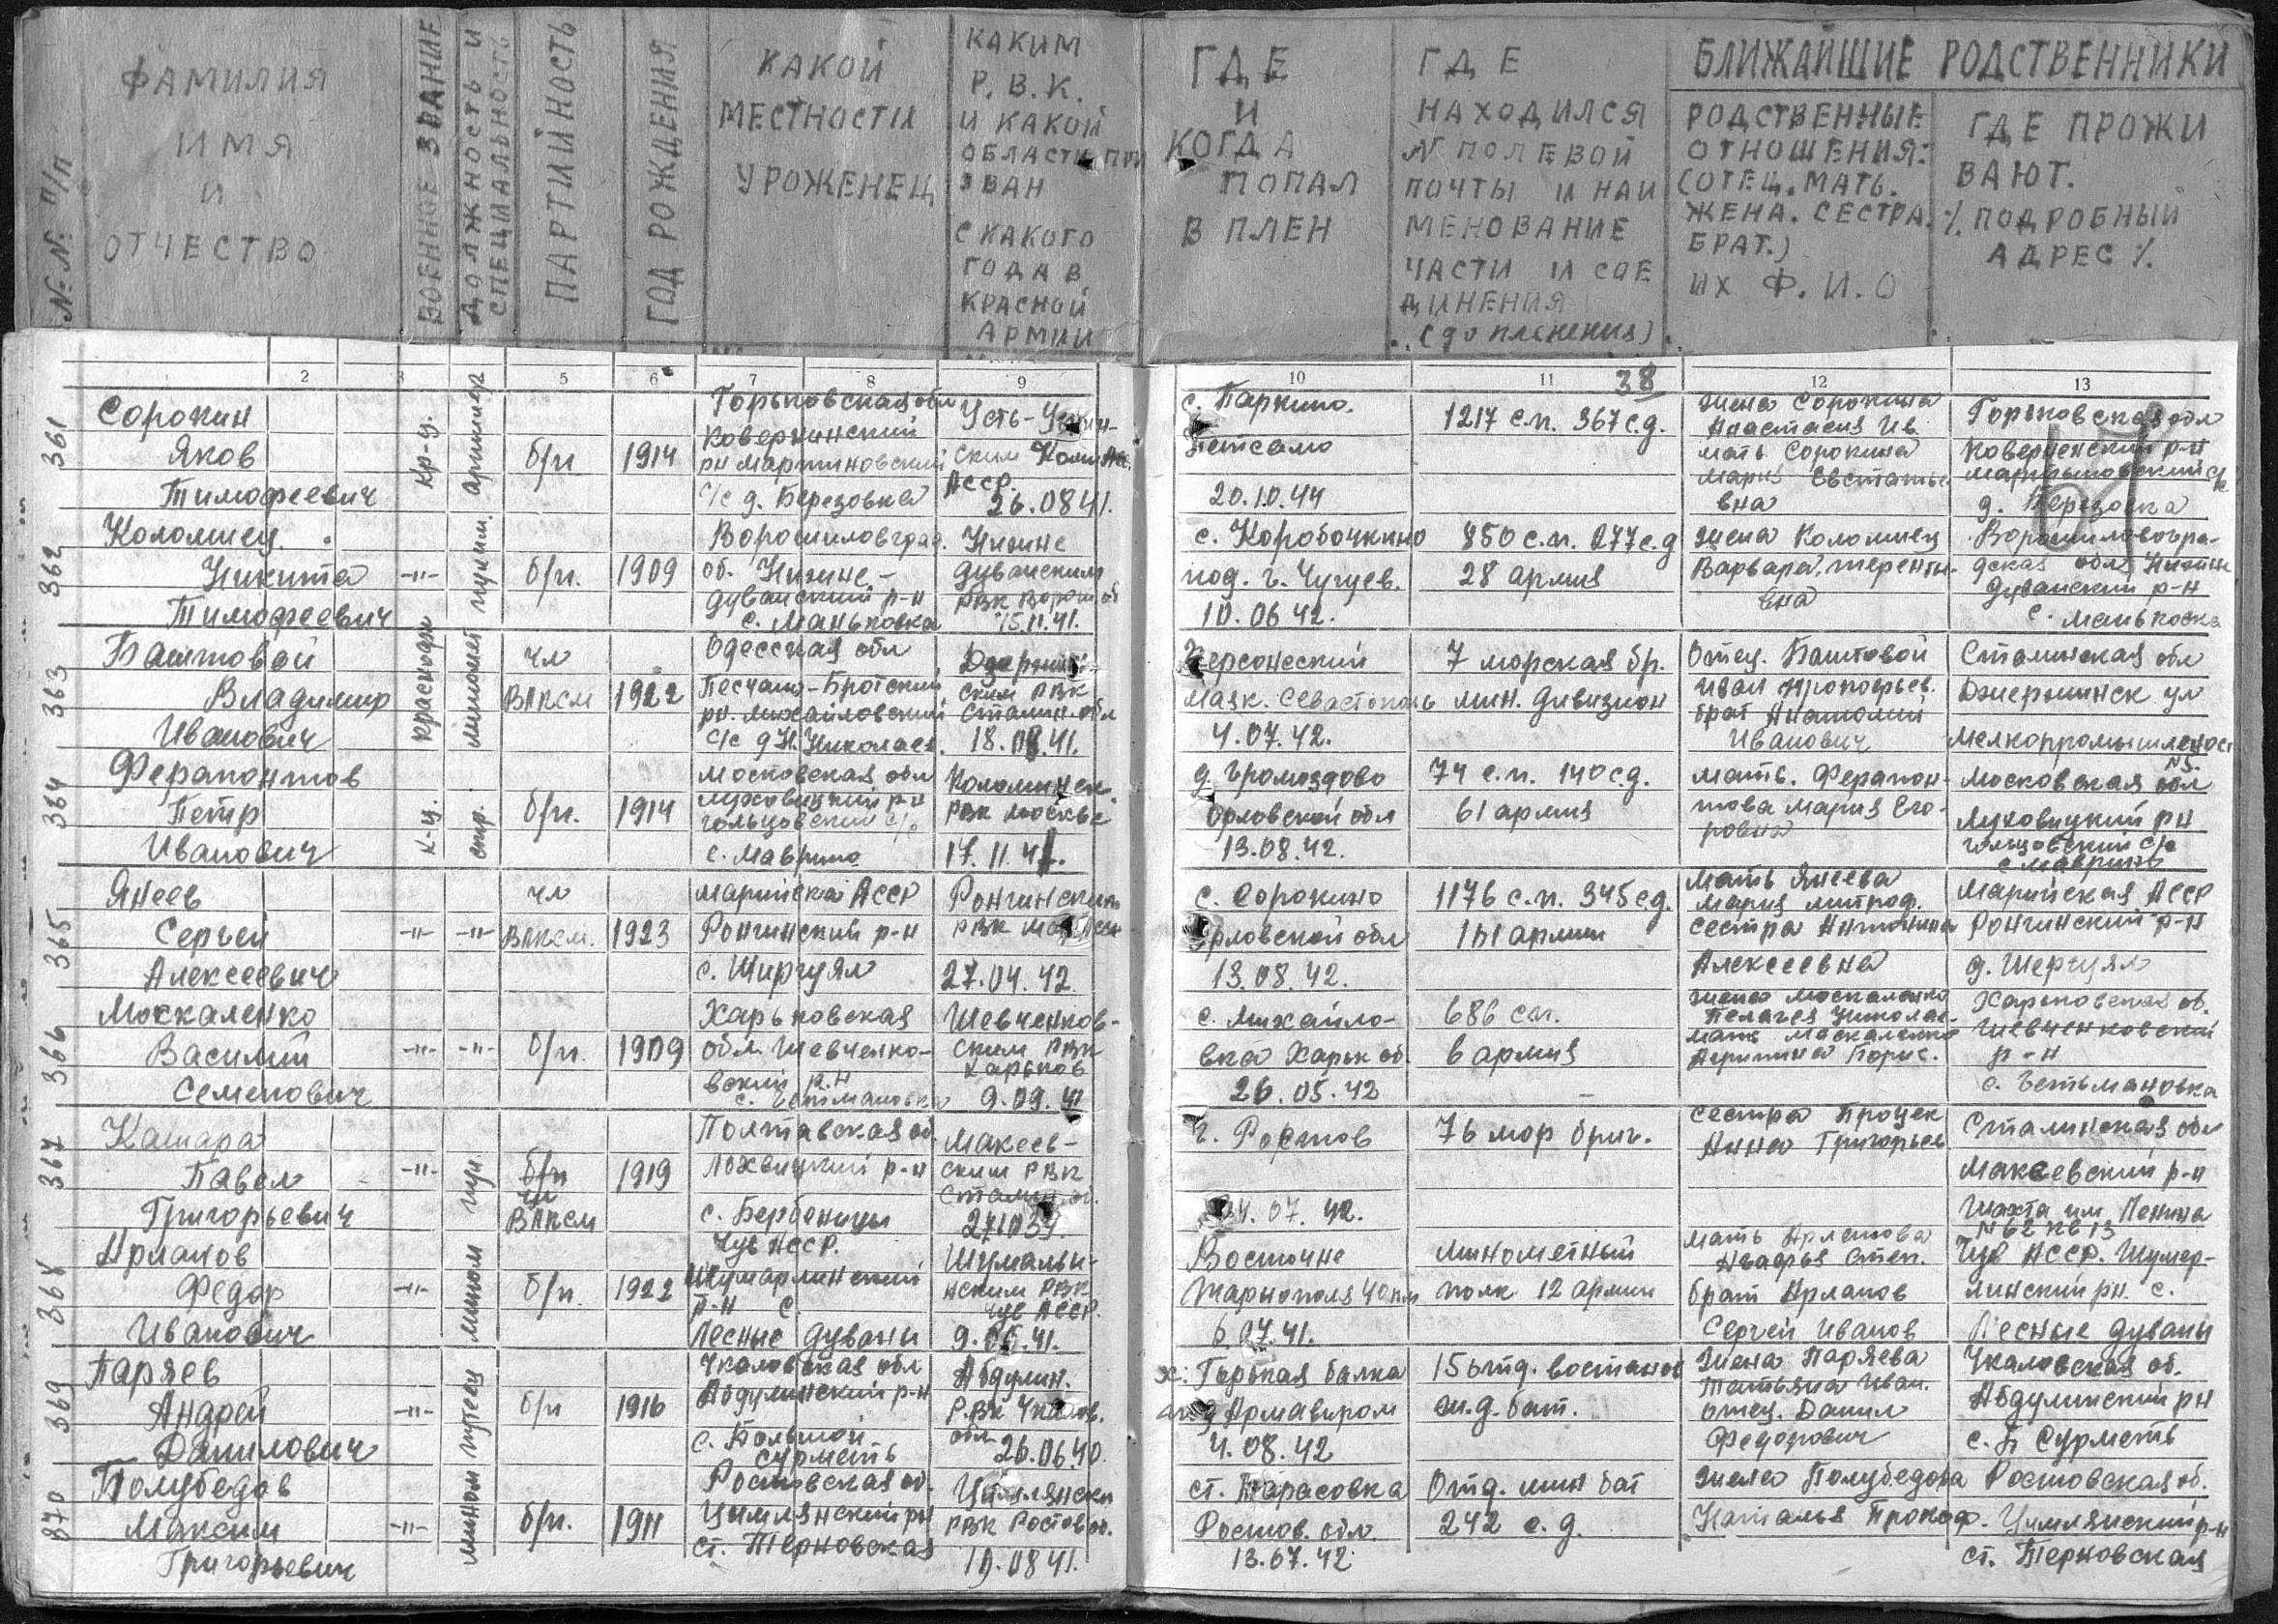 № № п/п
ФАМИЛИЯ
ИМЯ
И
ОТЧЕСТВО
ВОЕННОЕ ЗВАНИЕ
ДОЛЖНОСТЬ И
СПЕЦИАЛЬНОСТЬ
ПАРТИЙНОСТЬ
ГОД РОЖДЕНИЯ
КАКОЙ
МЕСТНОСТИ
УРОЖЕНЕЦ
КАКИМ
Р.В.К.
И КАКОЙ
ОБЛАСТИ ПРИ
ЗВАН
С КАКОГО
ГОДА В
КРАСНОЙ
АРМИИ
ГДЕ
И
КОГДА
ПОПАЛ
В ПЛЕН
ГДЕ
НАХОДИЛСЯ
N ПОЛЕВОЙ
ПОЧТЫ И НАИ
МЕНОВАНИЕ
ЧАСТИ И СОЕ
ДИНЕНИЯ
(до пленения)
БЛИЖАЙШИЕ РОДСТВЕННИКИ
РОДСТВЕННЫЕ
ОТНОШЕНИЯ:
(ОТЕЦ. МАТЬ.
ЖЕНА. СЕСТРА.
БРАТ.)
ИХ Ф.И.О
ГДЕ ПРОЖИ
ВАЮТ.
% ПОДРОБНЫЙ
АДРЕС %
2 3 5 6 7 8 9 10 11 38 12 13
361
Сорокин
Яков
Тимофеевич
кр-ц.
б/п
1914
Горьковская обл
Ковернинский
рн Мартиновский
с/с д. Березовка
АССР.
26.08 41.
с. Паркино.
Петсамо
20.10.44
1217 с.п. 367 с.д.
жена Сорокина
Анастасия Ив.
мать Сорокина
Мария Евстатье
вна
Горьковская обл
Ковернинский р-н
д. Березовка
362
Коломиец
Никита
Тимофеевич
-"-
б/п.
1909
Ворошиловград.
об. Нижне-
дуванский р-н
с. Маньковка
Нижне
дуванским
РВК Ворош об
15.11.41.
с. Коробочкино
под. г. Чугуев.
10.06 42.
850 с.п. 277 с.д
28 армия
жена Коломиец
Варвара, теренть-
вна
Ворошиловогра-
дская обл Нижне
дуванский р-н
с. маньковка
363
Баштовой
Владимир
Иванович
краснофл
миномет
чл
ВЛКСМ
1922
Одесская обл
Песчано-Бротский
рн. Михайловский
с/с д Н. Николаев.
ским РВК
Сталин. обл
18.08.41.
Херсонеский
маяк. Севастополь
4.07.42.
7 морская бр.
мин. дивизион
Отец. Баштовой
Иван Прокофьев.
брат Анатолий
Иванович
Сталинская обл
Дзержинск ул
364
Ферапонтов
Петр
Иванович
к-ц.
стр.
б/п.
1914
Московская обл
Луховицкий р-н
гольцовский с/с
с. Маврино
Коломенск.
РВК Москвы
17.11.41.
д. Громоздово
Орловской обл
13.08.42.
74 с.п. 140 с.д.
61 армия
мать. Ферапон-
това Мария Его-
ровна
Московская обл
Луховицкий рн
гольцовский с/с
с Маврино
365
Янеев
Сергей
Алексеевич
-"- -"-
чл
ВЛКСМ.
1923
Марийская АССР
Ронгинский р-н
с. Ширгуял
Ронгинским
27.04.42.
с. Сорокино
Орловской обл
13.08.42.
1176 с.п. 345 с.д.
161 армии
мать Янеева
Мария Митрод.
сестра Антонина
Алексеевна
Марийская АССР
Ронгинский р-н
д. Шергуял
366
Москаленко
Василий
Семенович
-"- -"-
б/п.
1909
Харьковская
обл Шевченко-
вский р.н
с. Гетмановка
Шевченков-
ским РВК
Харьков
9.09.41
с. Михайло-
вка Харьк об.
26.05.42
686 сп.
6 армия
жена Москаленко
Пелагея Николае.
мать Москаленко
Акулина Борис.
Харьковская об.
Шевченковский
р-н
с. Гетьмановка
367
Кашара
Павел
Григорьевич
-"-
пул.
б/п
чл
ВЛКСМ
1919
Полтавская об.
Лохвицкий р-н
с. Бербеницы
Макеев-
ским РВК
Сталин. об.
г. Ростов
24.07.42.
76 мор бриг.
сестра Процек
Анна Григорьев
Сталинская обл
Макеевский р-н
Шахта им Ленина
368
Арланов
Федор
Иванович
-"-
мином
б/п.
1922
Чув АССР.
Шумарлинский
р-н с.
Лесные дуваны
нским РВК
Чув АССР.
9.06.41.
Восточне
Тарнополя 40 км
6.07.41.
минометный
полк 12 армии
мать Арланова
Агафья Степ.
брат Арланов
Сергей Иванов
Чув АССР. Шумер-
линский рн. с.
Лесные дуваны
369
Паряев
Андрей
Данилович
-"-
б/п
1916
Чкаловская обл
Абдулинский р-н
с. Большой
Сурметь
Абдулин.
Р.ВК Чкалов.
обл
26.06.40.
х. Горькая балка
под Армавиром
4.08.42
15 отд. востанов
ж.д. бат.
Жена Паряева
Татьяна Иван.
отец. Данил
Федорович
Чкаловская об.
Абдулинский рн
с. Б Сурметь
370
Полубедов
Максим
Григорьевич
-"-
мином
б/п.
1911
Ростовская об.
Цимлянский рн
ст. Терновская
Цимлянски
РВК Ростов об.
19.08 41.
ст. Тарасовка
Ростов. обл.
13.07.42
Отд. мин бат
242 с.д.
жена Полубедова
Наталья Прокоф.
Ростовская об.
Цимлянский р-н
ст. Терновская